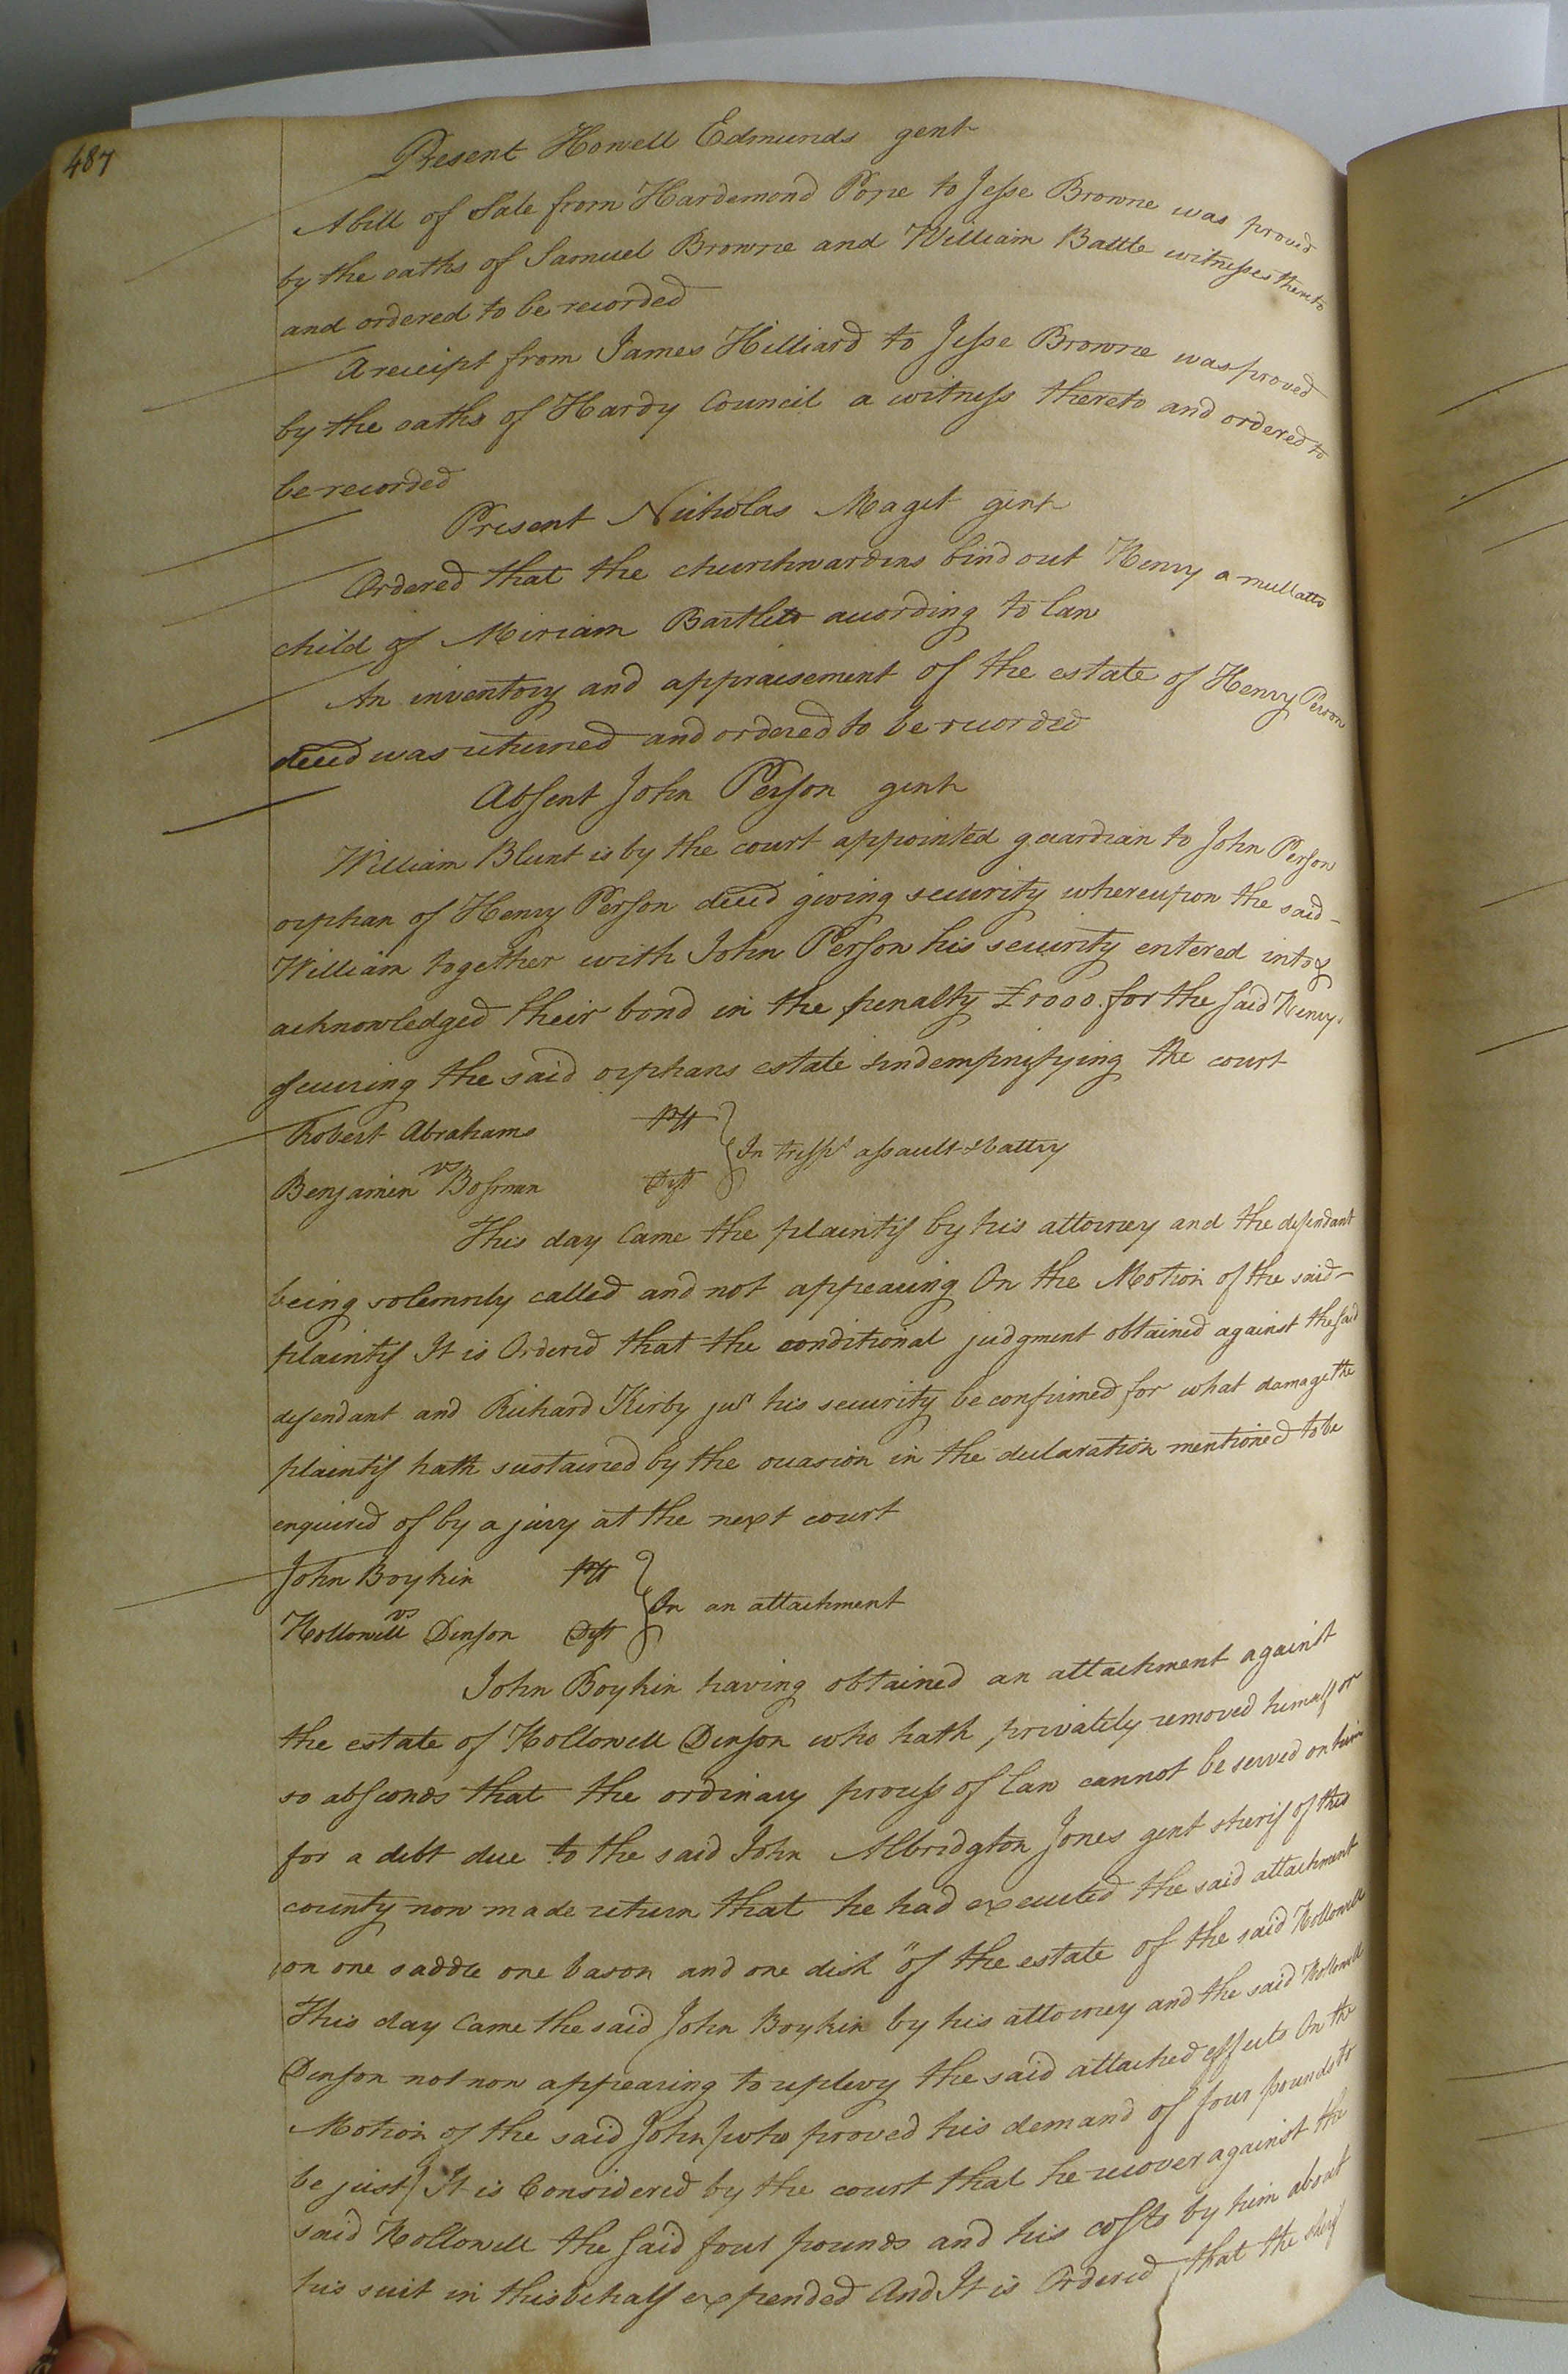 487
Present Howell Edmunds gent
A bill of Sale from Hardemond Pope to Jesse Browne was proved
by the oaths of Samuel Browne and William Battle witnesses thereto
and ordered to be recorded
A receipt from James Hilliard to Jesse Browne was proved
by the oaths of Hardy Council a witness thereto and ordered to
be recorded
Present Nicholas Maget gent
Ordered that the churchwardens bind out Henry a mullatto
child of Miriam Bartlett according to law
An inventory and appraisement of the estate of Henry Person
decd was returned and ordered to be recorded
Absent John Person gent
William Blunt is by the court appointed guardian to John Person
orphan of Henry Person decd giving security whereupon the said
William together with John Person his security entered into &
acknowledged their bond in the penalty £1000 for the said Henry
securing the said orphans estate & indempnifying the court
Robert Abrahams Plt
vs
In tresps assault & battry
Benjamin Bosman Deft
This day Came the plaintif by his attorney and the defendant
being solemnly called and not appearing On the Motion of the said
plaintif It is Ordered that the conditional judgment obtained against the said
defendant and Richard Kirby junr his security be confirmed for what damage the
plaintif hath sustained by the occasion in the declaration mentioned to be
enquired of by a jury at the next court
John Boykin Plt
vs
In an attachment
Hollowell Denson Deft
John Boykin having obtained an attachment against
the estate of Hollowell Denson who hath privately removed himself or
so absconds that the ordinary process of law cannot be served on him
for a debt due to the said John Albridgton Jones gent sherif of this
county now made return that he had executed the said attachment
on one saddle one bason and one dish " of the estate of the said Hollowell
This day Came the said John Boykin by his attorney and the said Hollowell
Denson not now appearing to replevy the said attached effects On the
Motion of the said John /who proved his demand of four pounds to
be just/ It is Considered by the court that he recover against the
said Hollowell the said four pounds and his costs by him about
his suit in this behalf expended And It is Ordered that the sherif